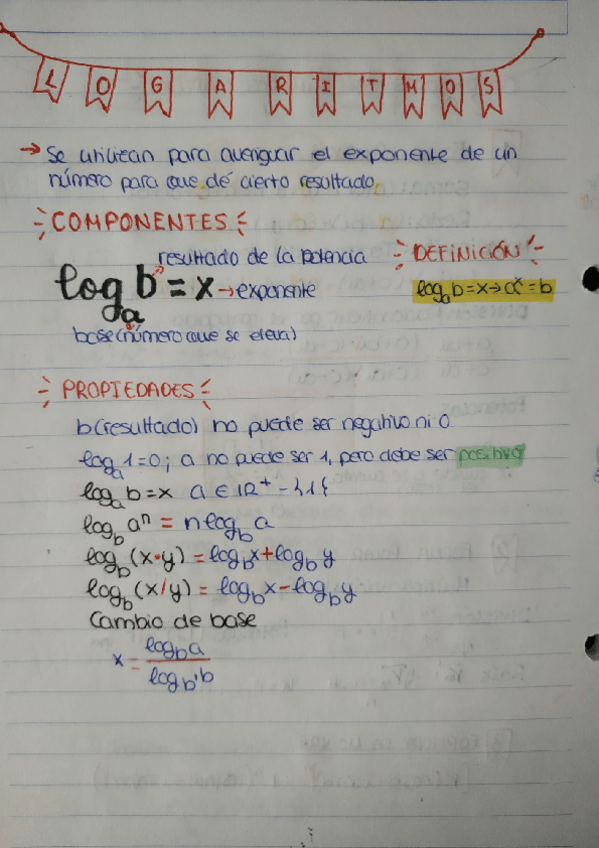 LOGARITMOS
→ Se utilizan para averiguar el exponente de un
número para que dé cierto resultado.
COMPONENTES
resultado de la potencia
DEFINICIÓN
logₐ b = x → exponente
logₐ b = x → aˣ = b
base (número que se eleva)
PROPIEDADES
b (resultado) no puede ser negativo ni 0.
logₐ 1 = 0; a no puede ser 1, pero debe ser positivo
logₐ b = x a ∈ IR⁺ - {1}
log_b aⁿ = n log_b a
log_b (x·y) = log_b x + log_b y
log_b (x/y) = log_b x - log_b y
Cambio de base
x = log_b a / log_b' b